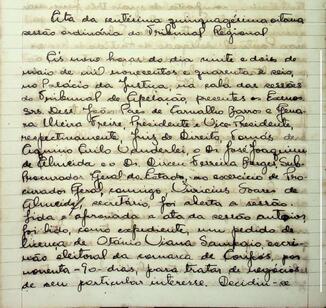 Acta da centésima quinquagésima oitava
sessão ordinária do Tribunal Regional
Às nove horas do dia vinte e dois de
maio de mil novecentos e quarenta e seis,
no Palácio da Justiça, na sala das sessões
do Tribunal de Apelação, presentes os Exmos
Srs. Des. João Pais de Carvalho Barros e
Vieira Freire, Presidente e Vice-Presidente
respectivamente, Juiz de Direito, Tomás de
Aquino Cirilo Wanderlei, e o Dr. José Joaquim
de Almeida e o Dr. Ferreira Borges, Sub-
Procurador Geral do Estado, no exercício de Pro-
curador Geral, comigo, Vinicius Soares de
Almeida, secretário, foi aberta a sessão.
Lida e aprovada a ata da sessão anterior,
foi lido, como expediente, um pedido de
licença de Otávio Viana Sampaio, escri-
vão eleitoral da comarca de por
noventa -90- dias, para tratar de negócios
de seu particular interesse. Decidiu-se